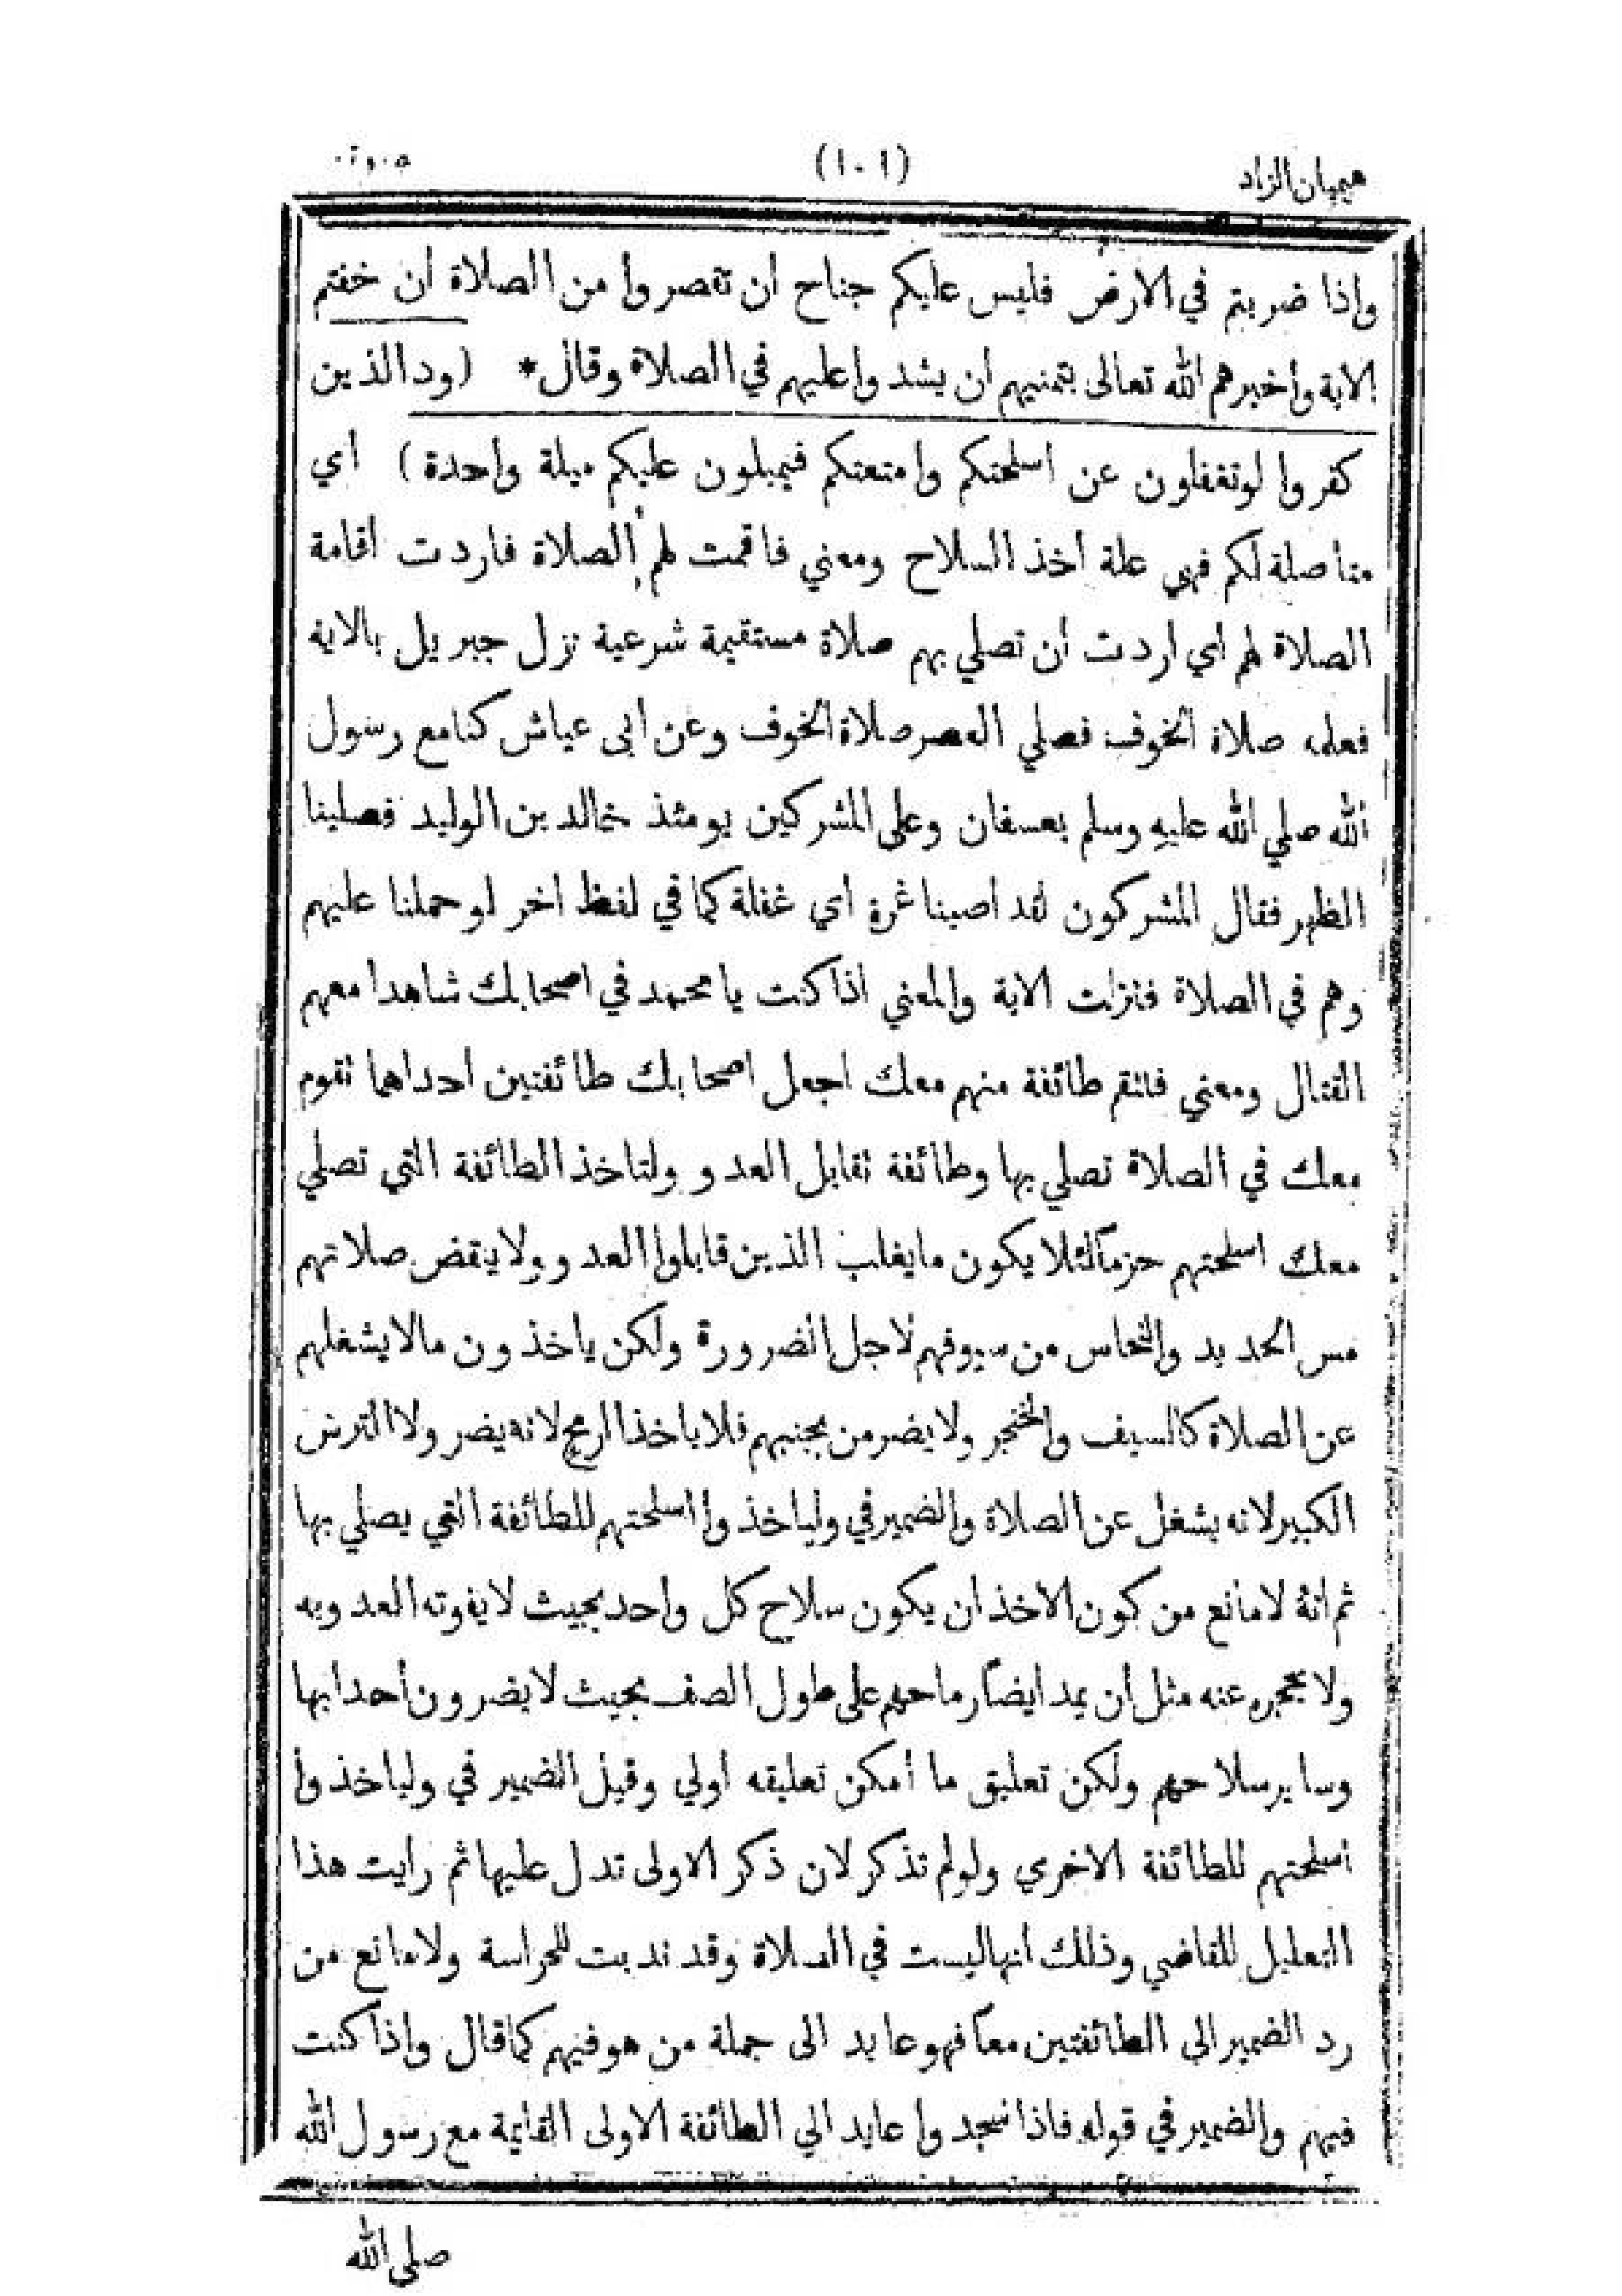 هيميان الزاد (١٠١)
واذا ضربتم في الارض فليس عليكم جناح ان تقصروا من الصلاة ان خفتم
الاية وأخبرهم الله تعالى بتمنيهم ان يشدوا عليهم في الصلاة وقال* (ود الذين
كفروا لوتغفلون عن اسلحتكم وامتعتكم فيميلون عليكم ميلة واحدة) أي
متأصلة لكم فهي علة أخذ السلاح ومعني فاقمت لهم الصلاة فاردت اقامة
الصلاة لهم اي اردت أن تصلي بهم صلاة مستقيمة شرعية نزل جبريل بالاية
فعلمه صلاة الخوف فصلي العصر صلاة الخوف وعن أبى عياش كنامع رسول
الله صلي الله عليه وسلم بعسفان وعلى المشركين يومئذ خالد بن الوليد فصلينا
الظهر فقال المشركون لقد أصبنا غرة أي غفلة كما في لفظ اخر لو حملنا عليهم
وهم في الصلاة فنزلت الاية والمعني اذا كنت يا محمد في اصحابك شاهدا معهم
القتال ومعني فلتقم طائفة منهم معك اجعل اصحابك طائفتين احداهما تقوم
معك في الصلاة تصلي بها وطائفة تقابل العدو ولتاخذ الطائفة التي تصلي
معك اسلحتهم حزماً لئلا يكون ما يغلب الذين قابلوا العدو ولا ينقض صلاتهم
مس الحديد والنحاس من سيوفهم لاجل الضرورة ولكن ياخذون مالا يشغلهم
عن الصلاة كالسيف والخنجر ولا يضر من بجنبهم فلا ياخذ الرمح لانه يضر ولا الترس
الكبير لانه يشغل عن الصلاة والضمير في ولياخذوا اسلحتهم للطائفة التي يصلي بها
ثم انه لا مانع من كون الاخذ ان يكون سلاح كل واحد بحيث لا يفوته العدو به
ولا يحجره عنه مثل أن يمد ايضاً رماحهم على طول الصف بحيث لا يضرون أحدا بها
وساير سلاحهم ولكن تعليق ما أمكن تعليقه اولي وقيل الضمير في ولياخذوا
اسلحتهم للطائفة الاخري ولولم تذكر لان ذكر الاولى تدل عليها ثم رايت هذا
التعليل للقاضي وذلك انها ليست في الصلاة وقد ندبت للحراسة ولا مانع من
رد الضمير الى الطائفتين معاً فهو عايد الى جملة من هو فيهم كما قال واذا كنت
فيهم والضمير في قوله فاذا سجدوا عايد الي الطائفة الاولى القايمة مع رسول الله
صلى الله